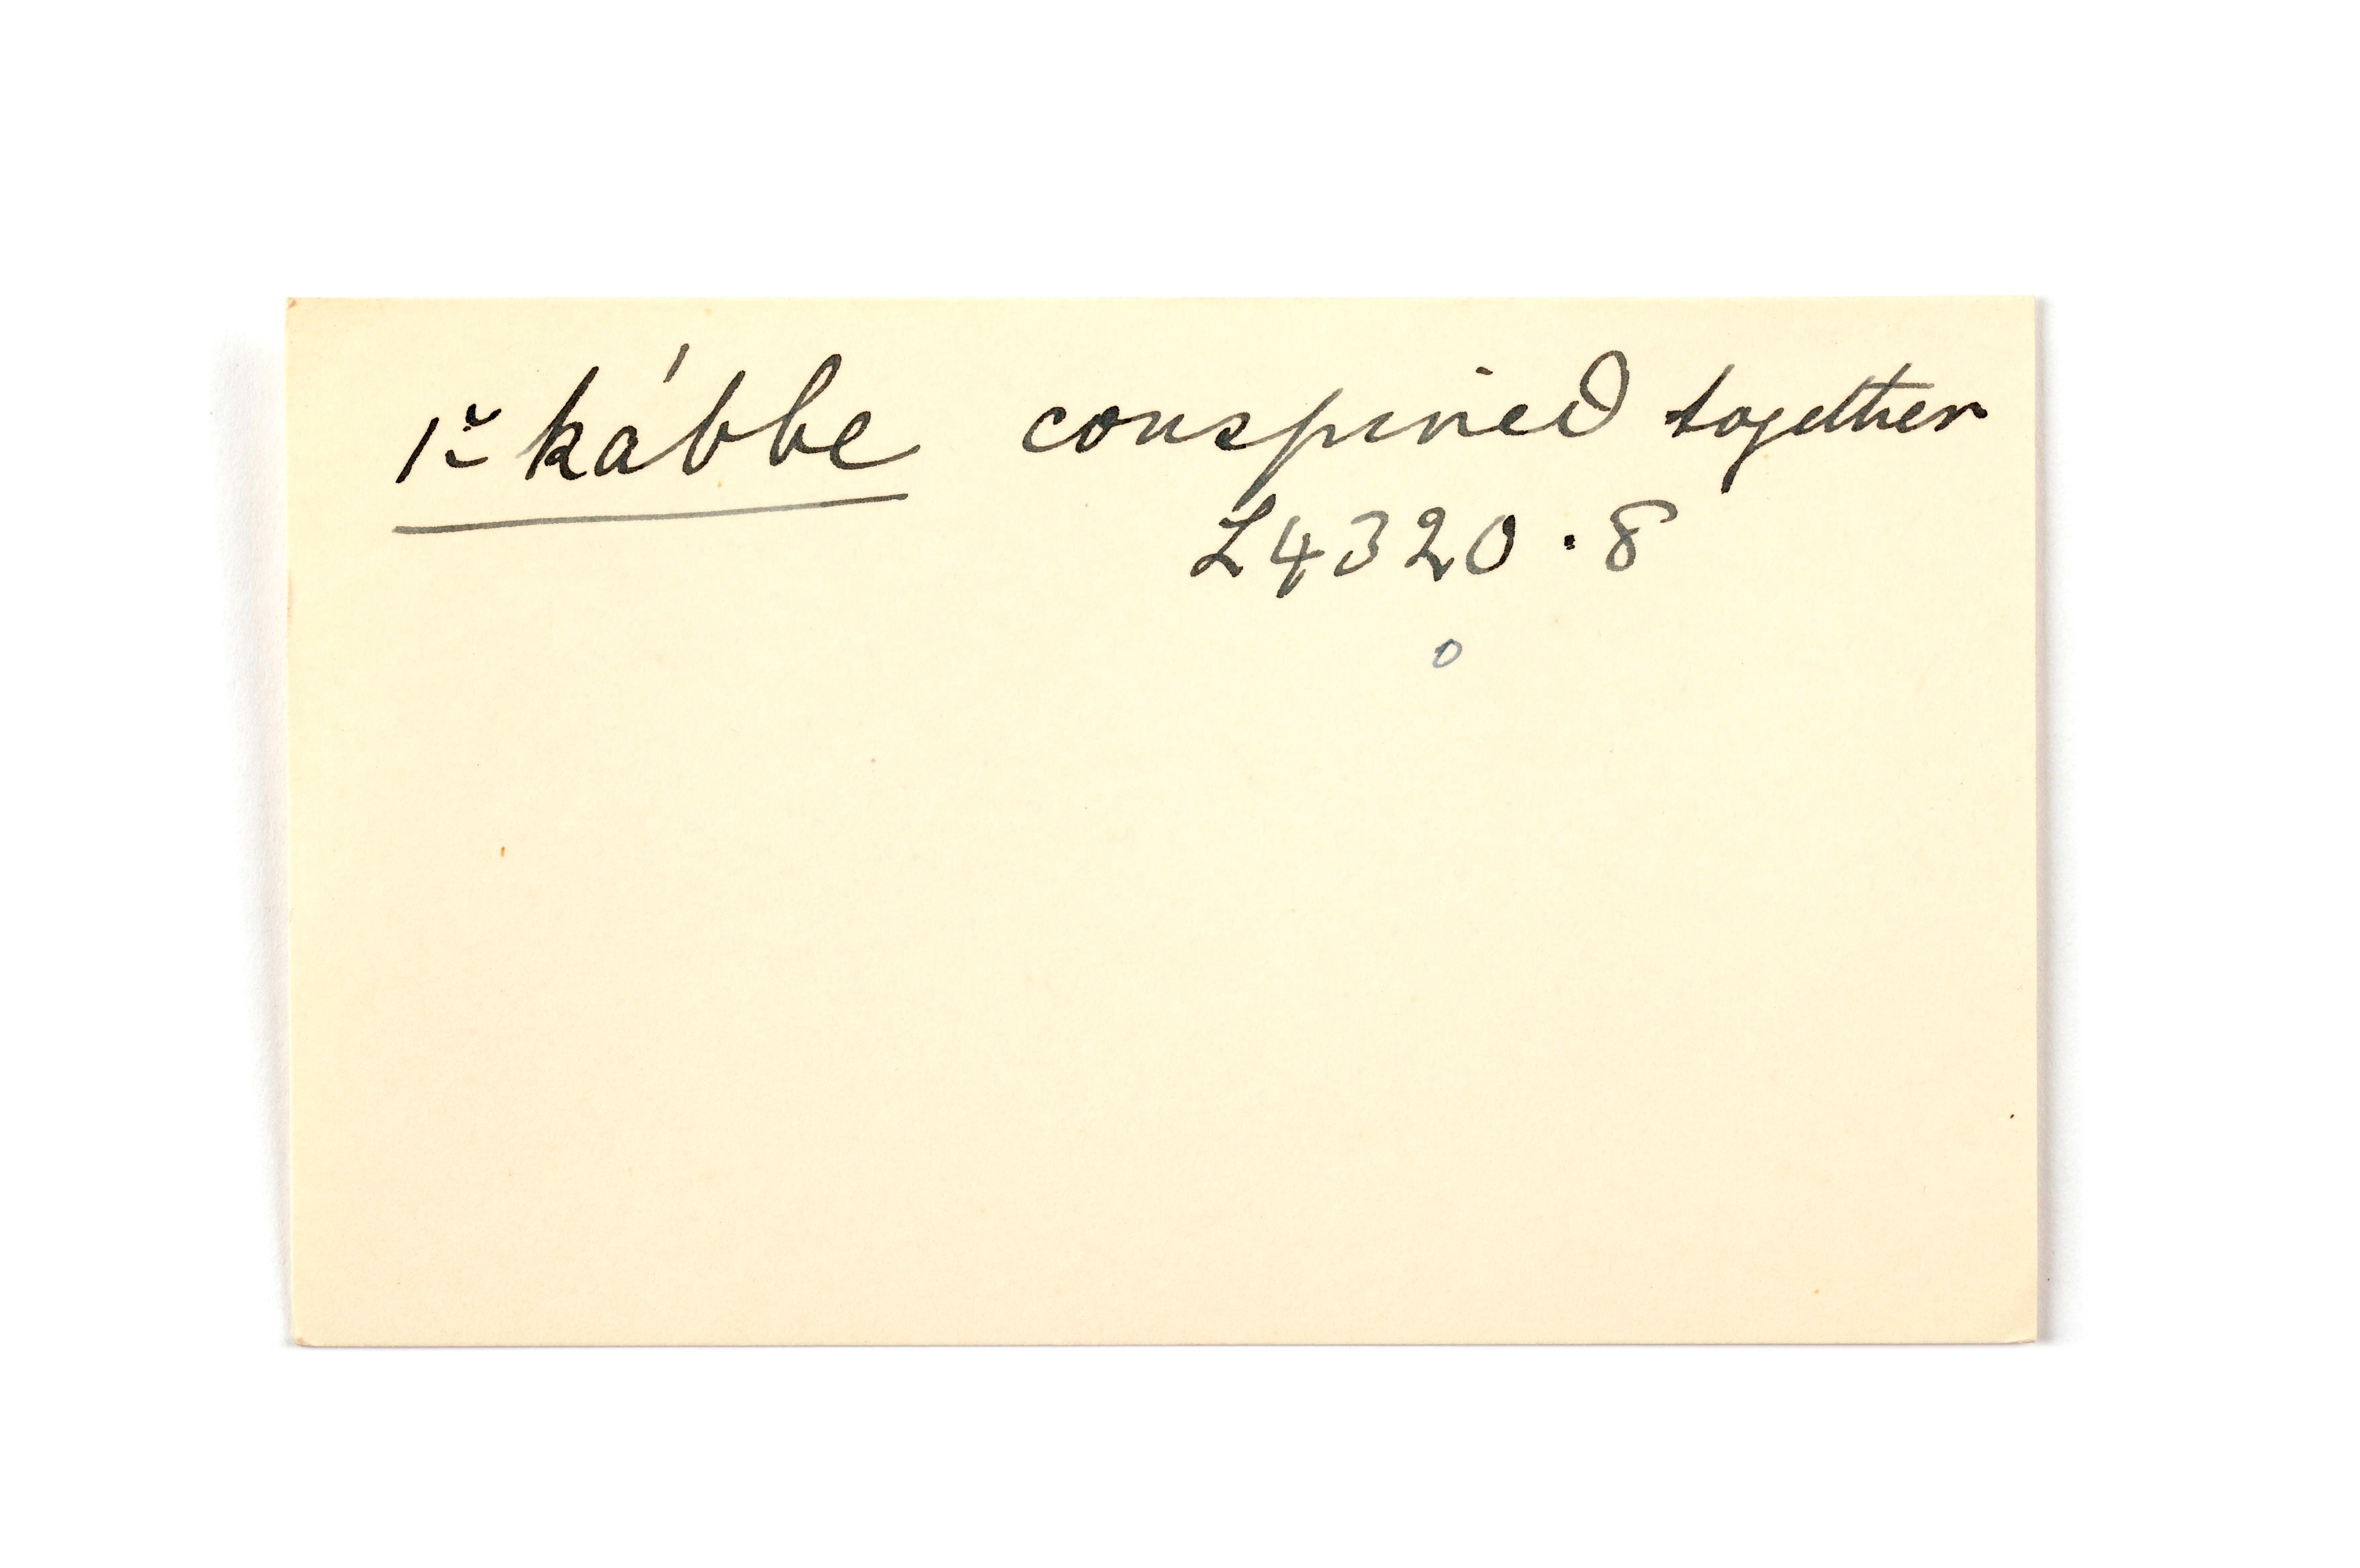 /˜kábbe conspired together
L4320.8
o